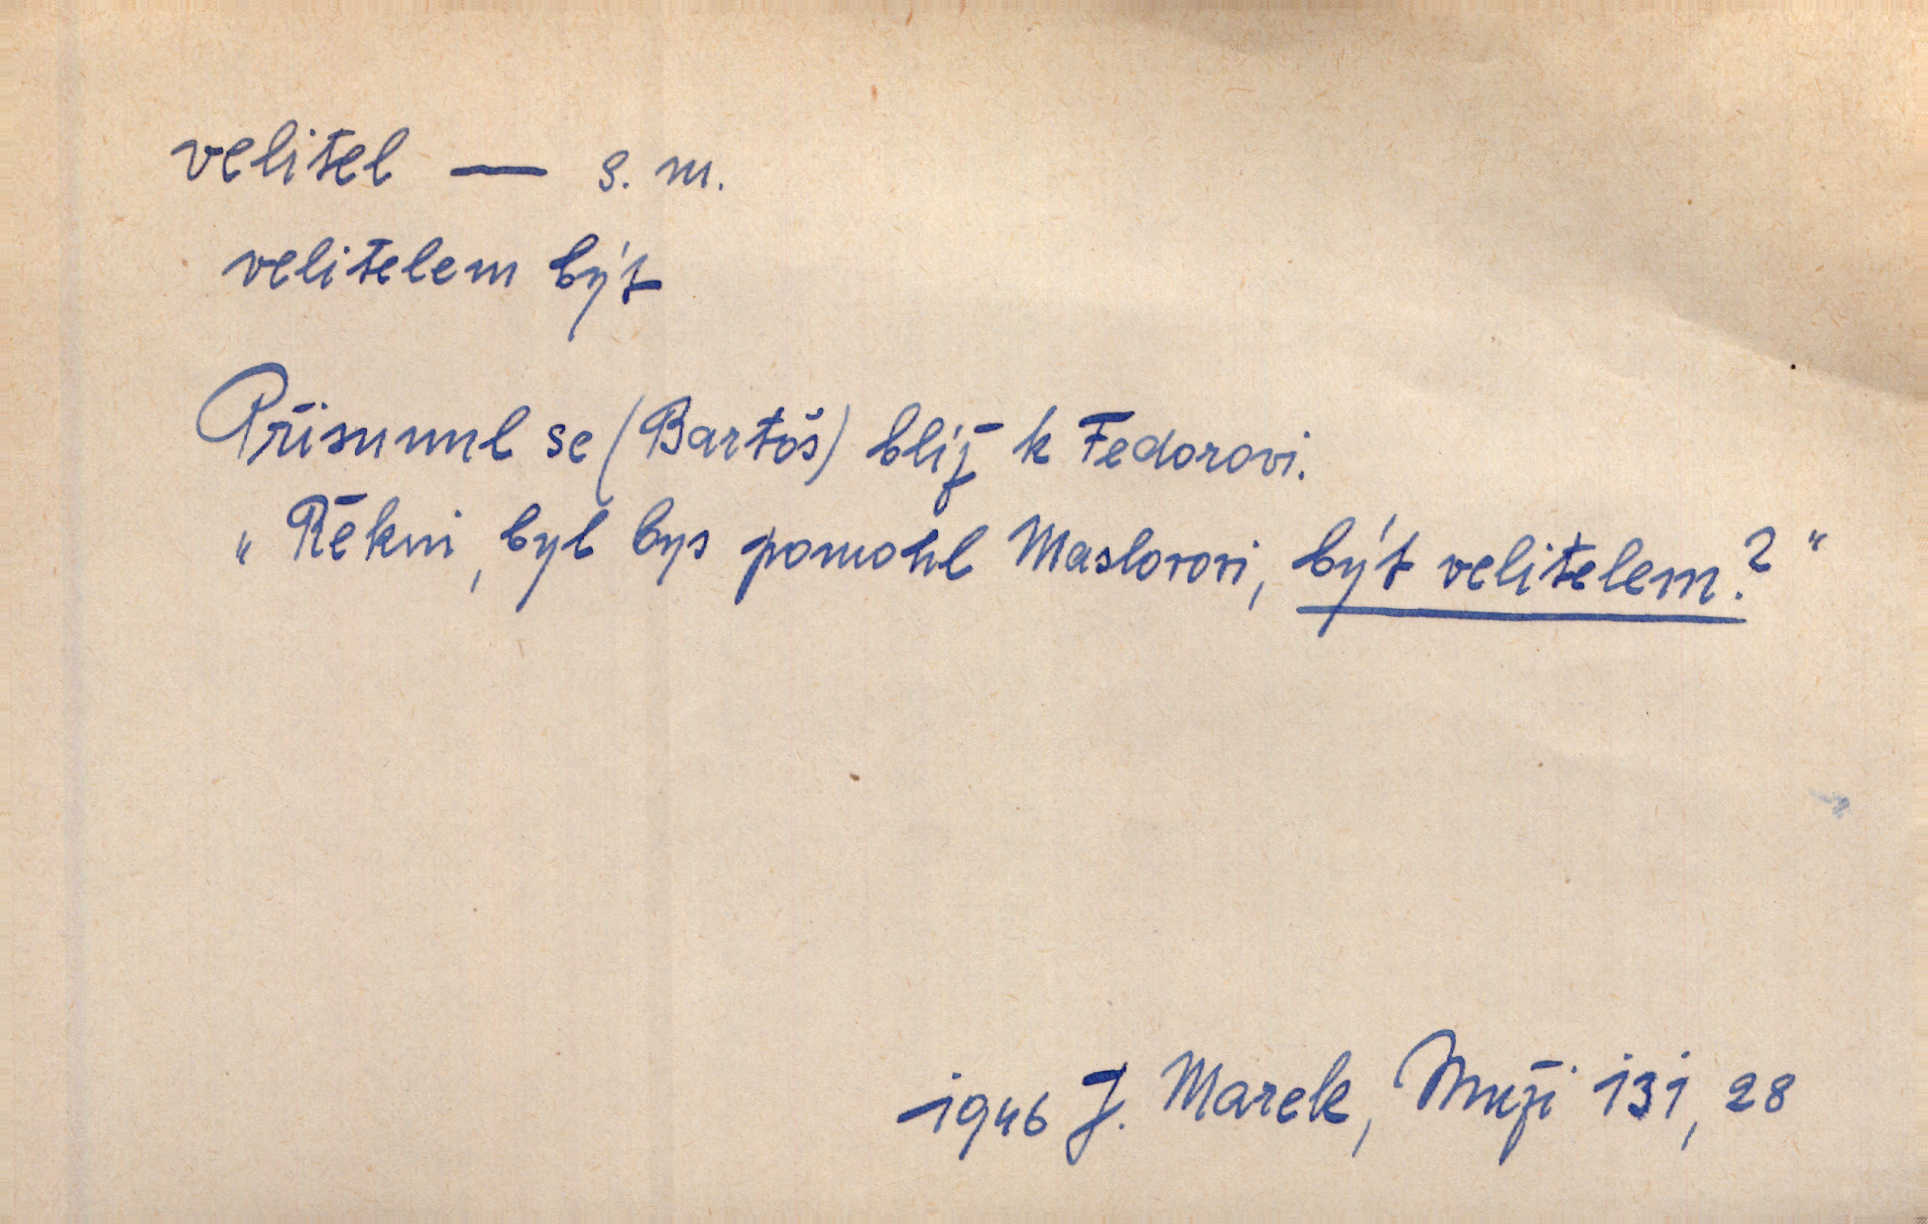 velitel — s. m.
velitelem být
Přisunul se (Bartoš) blíž k Fedorovi.
„Řekni, byl bys pomohl Maslovovi, být velitelem?“
1946 J. Marek, Muži 131, 28